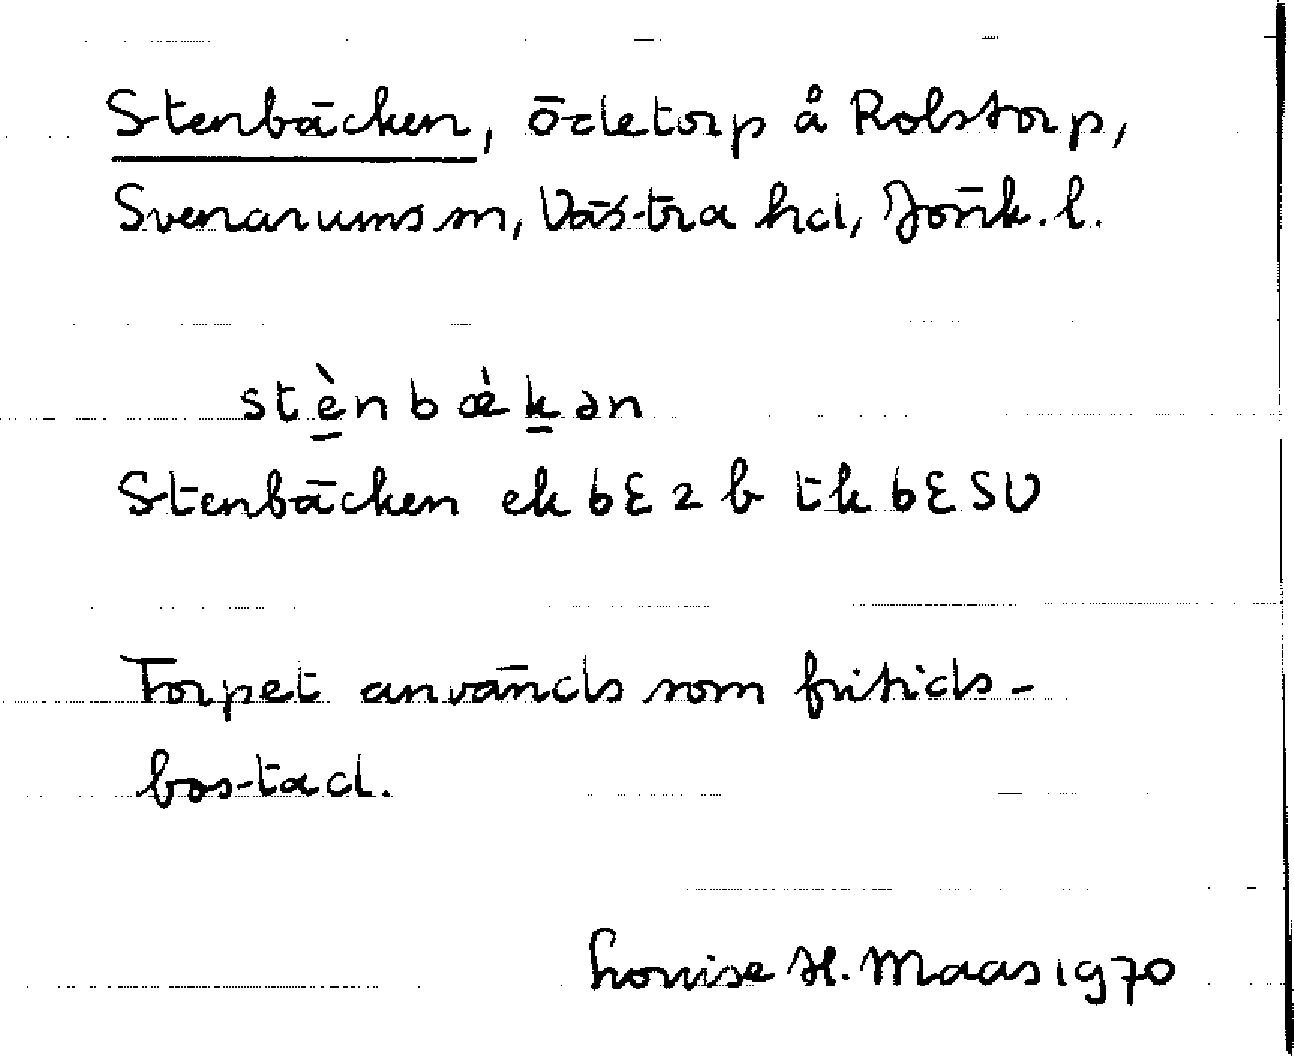 Stenbäcken, ödetorp å Rolstorp,
Svenarums sn, Västra hd, Jönk. l.
stè̱nbæ̀ḵən
Stenbäcken ek 6E2b tk 6ESV
Torpet används som fritids-
bostad.
Louise H. Maas 1970